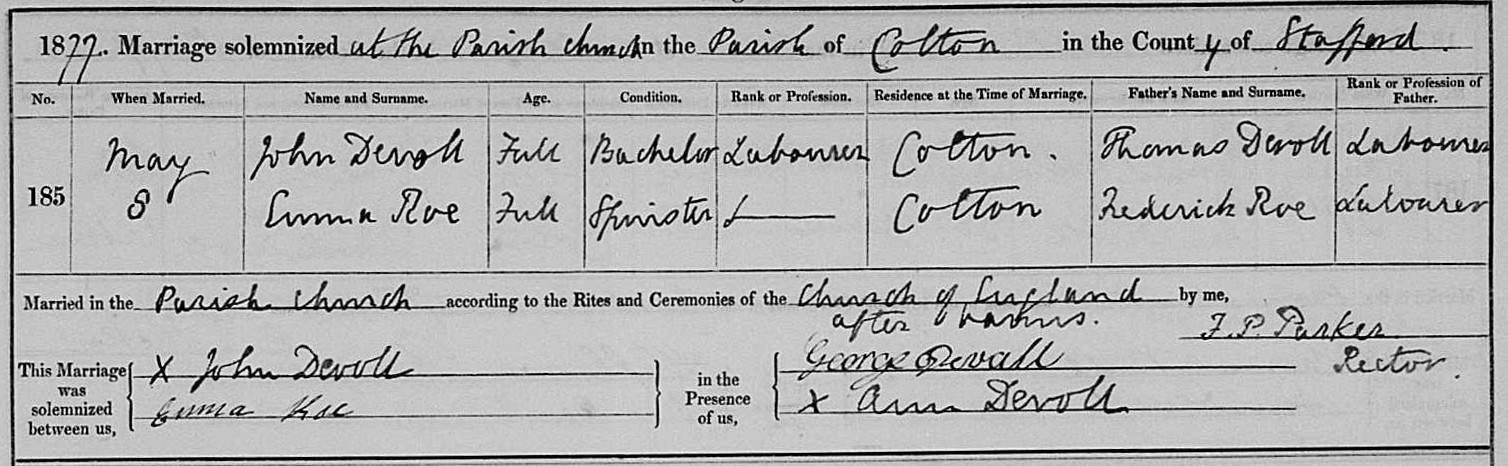 1877. Marriage solemnized at the Parish church in the Parish of Colton in the County of Stafford.
No. When Married. Name and Surname. Age. Condition. Rank or Profession. Residence at the Time of Marriage. Father's Name and Surname. Rank or Profession of Father.
185 May 8 John Devoll Full Bachelor Labourer Colton. Thomas Devoll Labourer
Emma Roe Full Spinster Colton Frederick Roe Labourer
Married in the Parish church according to the Rites and Ceremonies of the Church of England by me,
after banns. F. P. Parker
Rector.
This Marriage was solemnized between us, X John Devoll
Emma Roe
in the Presence of us, George Devall
X Ann Devoll